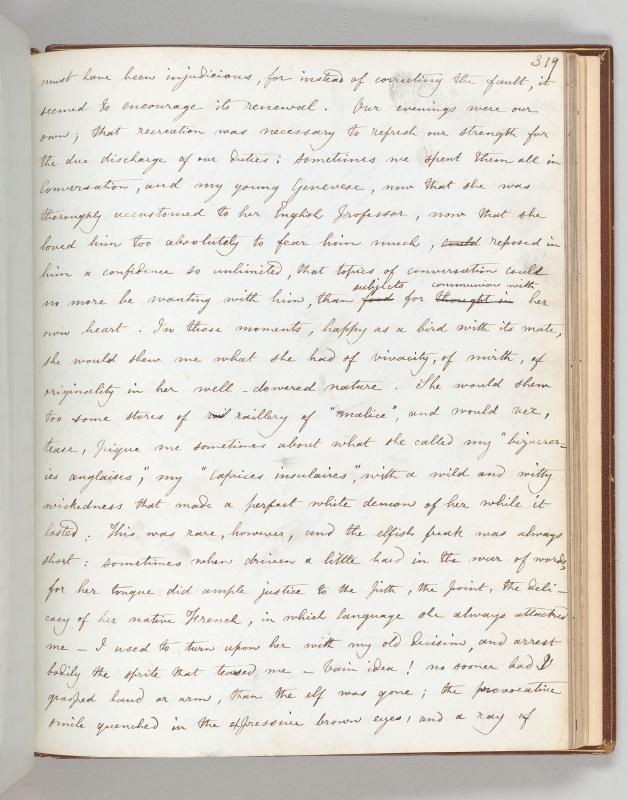 319
must have been injudicious, for instead of correcting the fault, it
seemed to encourage its renewal. Our evenings were our
own; that recreation was necessary to refresh our strength for
the due discharge of our duties; sometimes we spent them all in
Conversation, and my young Genevese, now that she was
thoroughly accustomed to her English Professor, now that she
loved him too absolutely to fear him much, could reposed in
him a confidence so unlimited, that topics of conversation could
subjects communion with
no more be wanting with him, than food for thought in her
own heart. In those moments, happy as a bird with its mate,
she would shew me what she had of vivacity, of mirth, of
originality in her well-dowered nature. She would shew
too some stores of rail raillery of "malice", and would vex,
tease, pique me sometimes about what she called my "bizarrer-
ies anglaises", my "caprices insulaires", with a wild and witty
wickedness that made a perfect white demon of her while it
lasted. This was rare, however, and the elfish freak was always
short: sometimes when driven a little hard in the war of words,
for her tongue did ample justice to the pith, the point, the deli-
cacy of her native French, in which language she always attacked
me - I used to turn upon her with my old decision, and arrest
bodily the sprite that teased me - Vain idea! no sooner had I
grasped hand or arm, than the elf was gone; the provocative
smile quenched in the expressive brown eyes, and a ray of